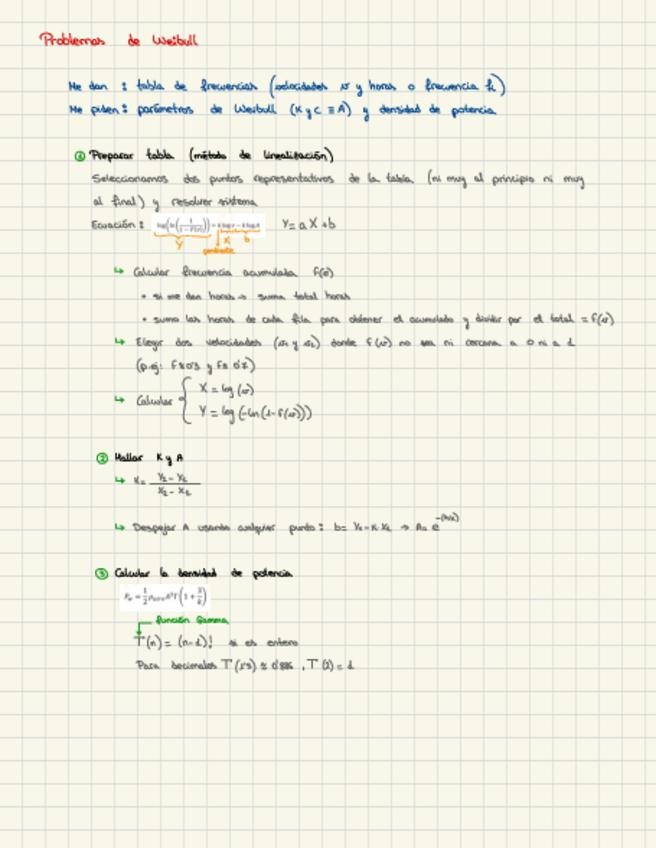 Problemas de Weibull
Me dan : tabla de frecuencias (velocidades v y horas o frecuencia h)
Me piden : parámetros de Weibull (K y C ≡ A) y densidad de potencia
① Preparar tabla (método de linealización)
Seleccionamos dos puntos representativos de la tabla (ni muy al principio ni muy
al final) y resolver sistema
Ecuación : log(ln(1/(1-F(v)))) = k log v - k log A Y = a X + b
Y X b
pendiente
↳ Calcular frecuencia acumulada F(v)
• si me dan horas → suma total horas
• sumo las horas de cada fila para obtener el acumulado y dividir por el total = F(v)
↳ Elegir dos velocidades (v₁ y v₂) donde F(v) no sea ni cercana a 0 ni a 1
(p.ej: F≈0'3 y F≈0'7)
↳ Calcular { X = log (v)
Y = log (-ln(1-F(v)))
② Hallar K y A
↳ K = (Y₂ - Y₁)/(X₂ - X₁)
↳ Despejar A usando cualquier punto : b = Y₁ - K·X₁ → A = e^-(b/k)
③ Calcular la densidad de potencia
= 1/2 A³ Γ(1 + 3/k)
función Gamma
Γ(n) = (n-1)! si es entero
Para decimales Γ(1'5) ≈ 0'886 , Γ(2) = 1